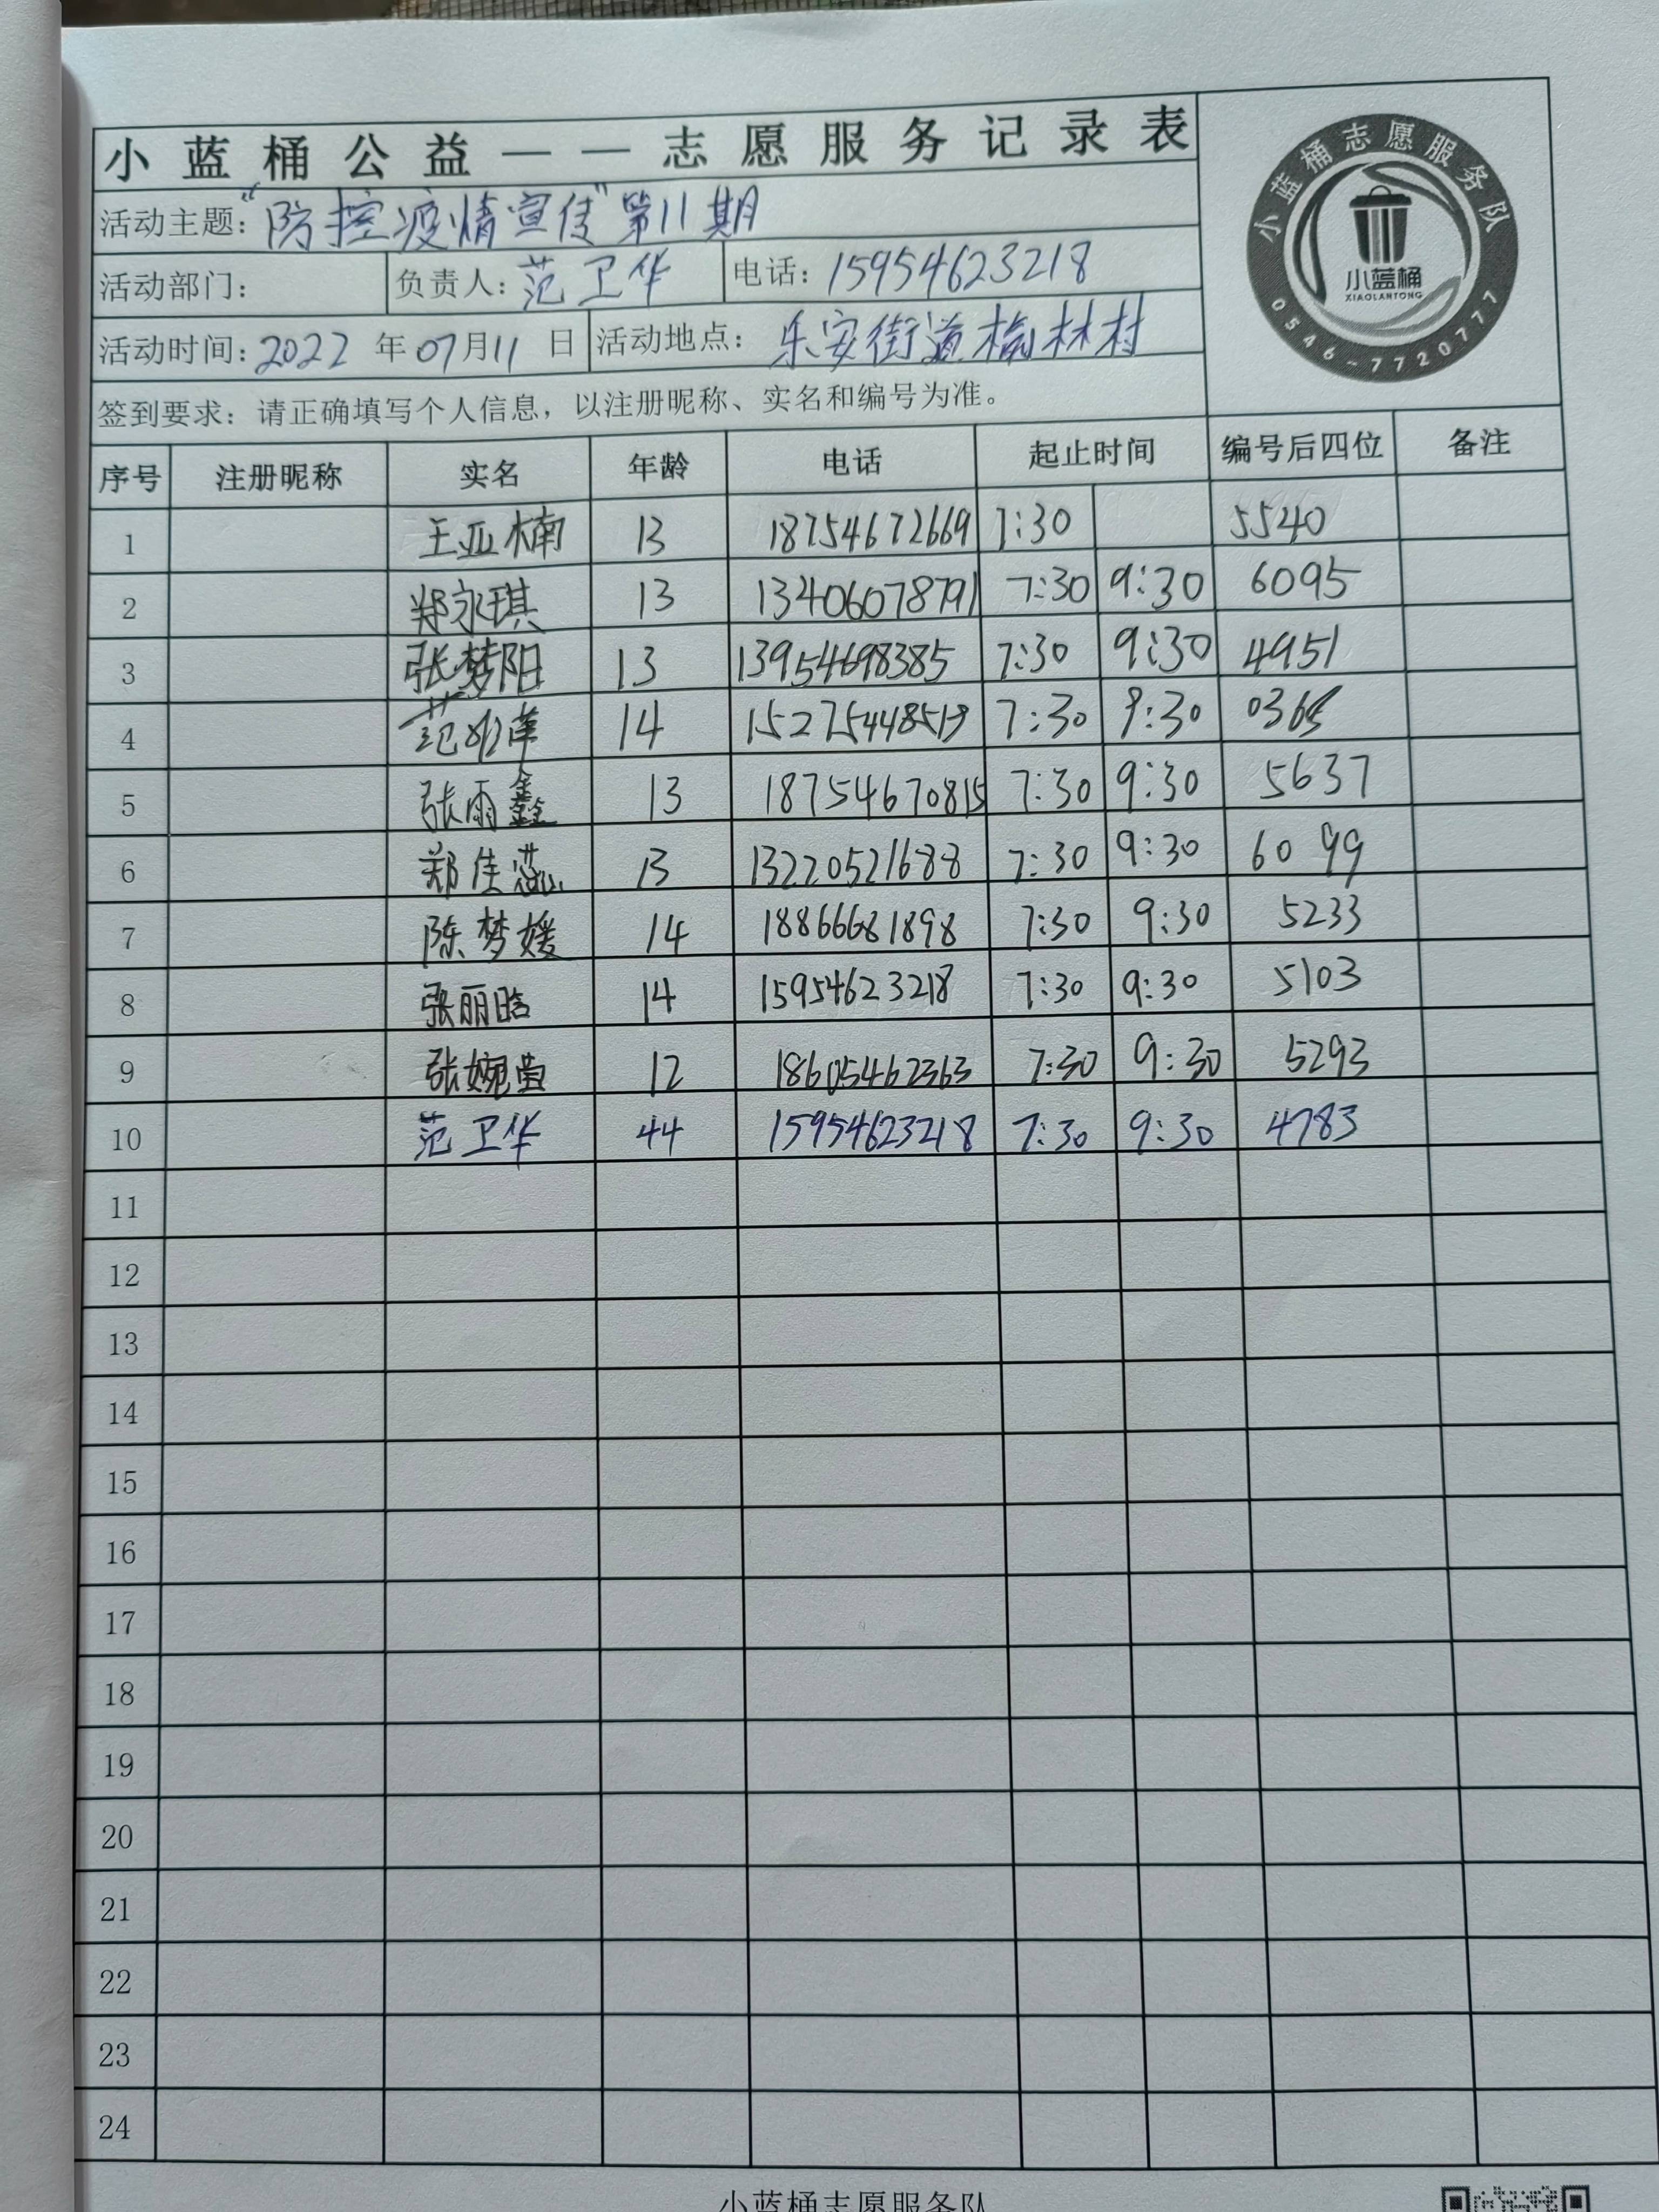 小蓝桶公益——志愿服务记录表
小蓝桶志愿服务队
小蓝桶
XIAOLANTONG
0546-7720777
活动主题：“防控疫情宣传”第11期
活动部门： 负责人：范卫华 电话：15954623218
活动时间：2022年07月11日 活动地点：乐安街道榆林村
签到要求：请正确填写个人信息，以注册昵称、实名和编号为准。
序号 注册昵称 实名 年龄 电话 起止时间 编号后四位 备注
1 王亚楠 13 18754672669 7:30 5540
2 郑永琪 13 13406078791 7:30 9:30 6095
3 张梦阳 13 13954698385 7:30 9:30 4951
4 范 14 7:30 9:30
5 张雨鑫 13 18754670815 7:30 9:30 5637
6 郑佳蕊 13 13220521688 7:30 9:30 6099
7 陈梦媛 14 18866681898 7:30 9:30 5233
8 张丽晗 14 15954623218 7:30 9:30 5103
9 张婉茵 12 18605462363 7:30 9:30 5293
10 范卫华 44 15954623218 7:30 9:30 4783
11
12
13
14
15
16
17
18
19
20
21
22
23
24
小蓝桶志愿服务队